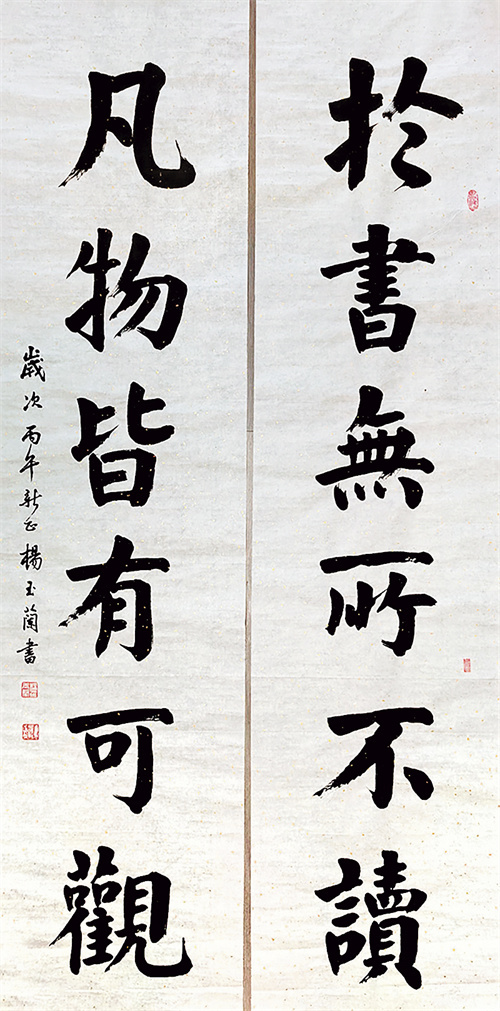 於書無所不讀
凡物皆有可觀
歲次丙午新正楊玉蘭書